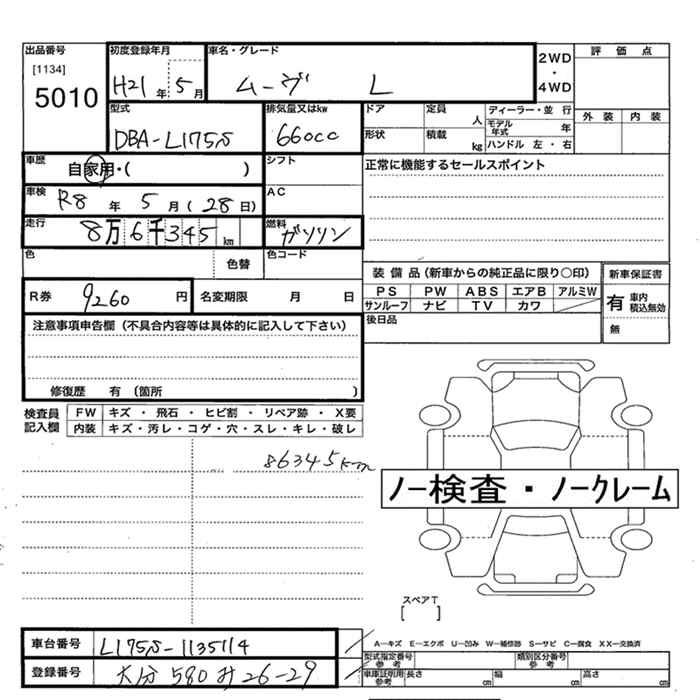 出品番号
[1134]
5010
初度登録年月
H21年5月
車名・グレード
ムーヴ L
2WD
・
4WD
評価点
外装 内装
型式
DBA-L175S
排気量又はkw
660cc
ドア
定員
人
形状
積載
kg
ディーラー・並行
モデル年式 年
ハンドル 左・右
車歴
自家用・( )
シフト
正常に機能するセールスポイント
車検
R8年5月(28日)
AC
走行
8万6千345km
燃料
ガソリン
色
色替
色コード
R券 9260円
名変期限 月 日
装備品(新車からの純正品に限り○印)
PS PW ABS エアB アルミW
サンルーフ ナビ TV カワ
新車保証書
有 車内積込無効
無
後日品
注意事項申告欄(不具合内容等は具体的に記入して下さい)
修復歴 有(箇所 )
検査員記入欄
FW キズ・飛石・ヒビ割・リペア跡・X要
内装 キズ・汚レ・コゲ・穴・スレ・キレ・破レ
86345km
ノー検査・ノークレーム
スペアT
[ ]
車台番号 L175S-1135114
登録番号 大分 580 み 26-29
A−キズ E−エクボ U−凹み W−補修跡 S−サビ C−腐食 XX−交換済
型式指定番号 参考
類別区分番号 参考
車庫証明用 参考
長さ cm 幅 cm 高さ cm